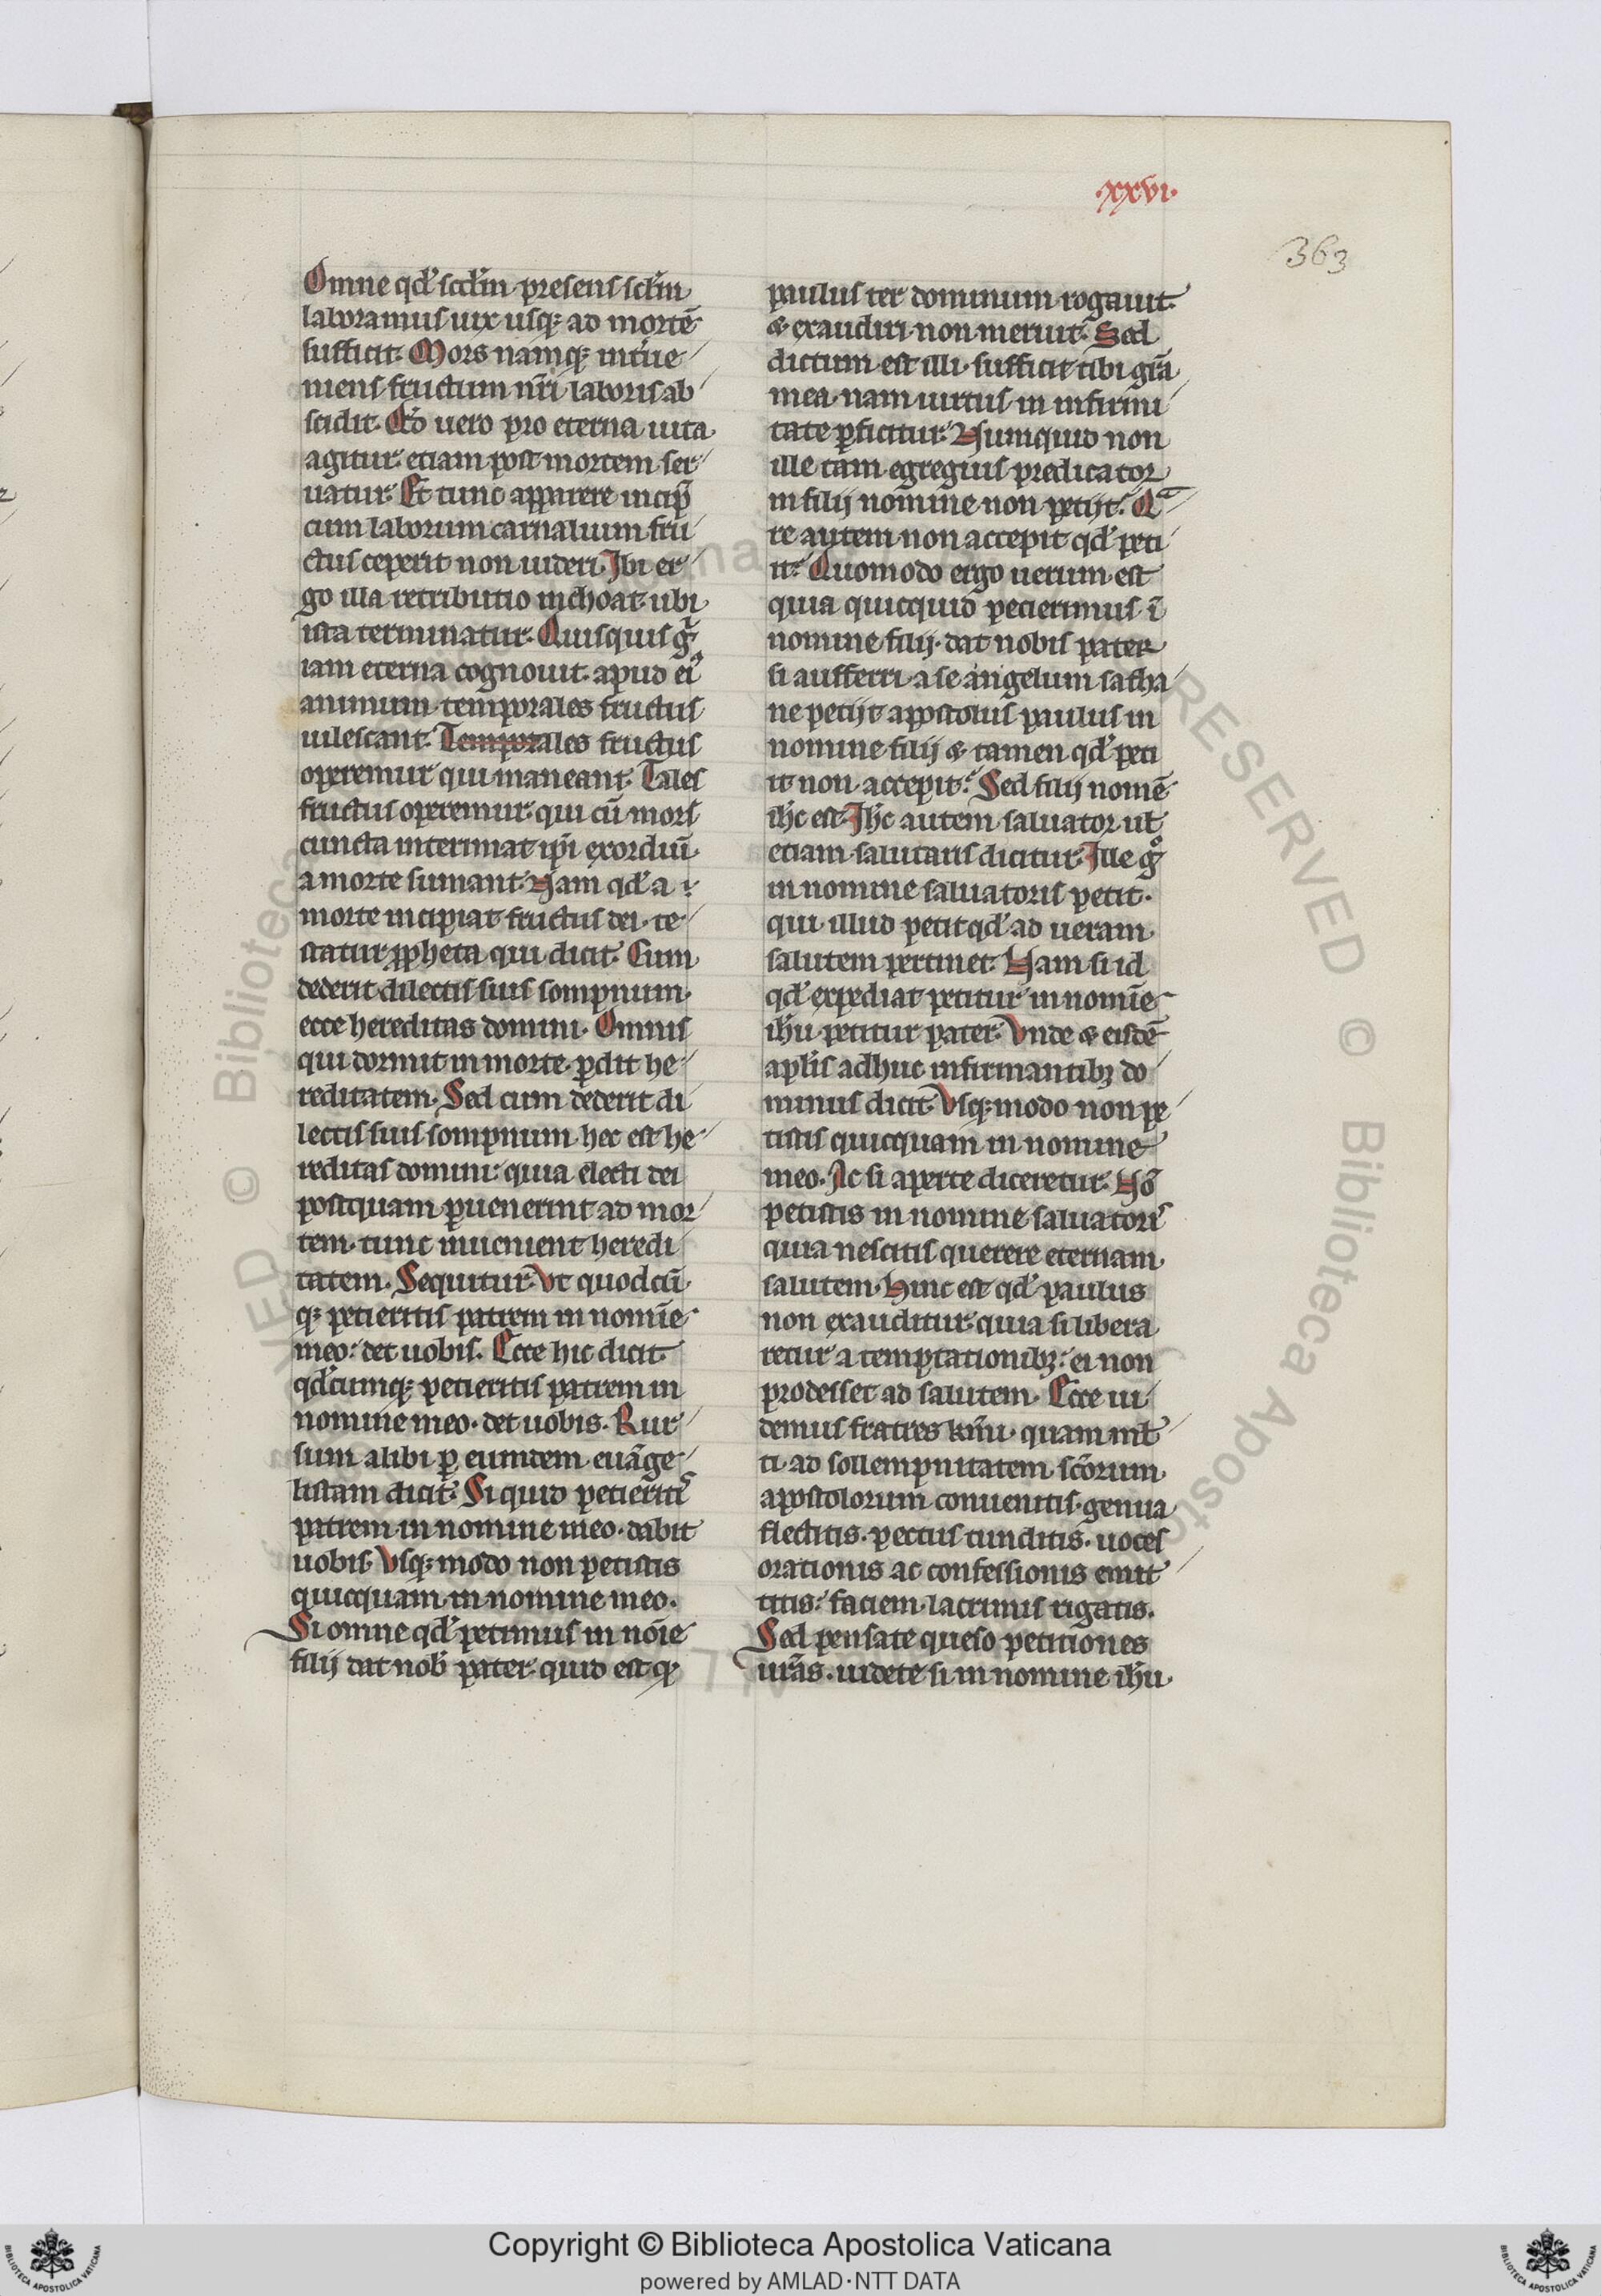 ·xxvi·
363
Omne qd' scd'm presens scl'm
laboramus uix usq; ad mortē
sufficit. Mors namq; int'ue
niens fructum nr̄i laboris ab
scidit. Qō uero pro eterna uita
agitur etiam post mortem ser
uatur. Et tunc apparere incip̄
cum laborum carnalium fru
ctus ceperit non uideri. Ibi er
go illa retributio inchoat ubi
ista terminatur. Quisquis g̊
iam eterna cognouit apud ei9
animum temporales fructus
uilescant. Temporales fructus
operemur qui maneant. Tales
fructus operemur qui cū mors
cuncta interimat ip̄i exordiū
a morte sumant. Nam qd' a
morte incipiat fructus dei te
statur ꝓpheta qui dicit. Cum
dederit dilectis suis sompnum
ecce hereditas domini. Omnis
qui dormit in morte ꝑdit he
reditatem. Sed cum dederit di
lectis suis sompnum hec est he
reditas domini quia electi dei
postquam ꝑuenerint ad mor
tem tunc inuenient heredi
tatem. Sequitur. Vt quodcū
q; petieritis patrem in nomīe
meo det uobis. Ecce hic dicit
qd'cumq; petieritis patrem in
nomine meo. det uobis. Rur
sum alibi ꝑ eumdem euāge
listam dicit. Si quid petierit
patrem in nomine meo dabit
uobis. Vsq; modo non petistis
quicquam in nomine meo.
Si omne qd' petimus in nōie
filij dat nob' pater quid est q'
paulus ter dominum rogauit
& exaudiri non meruit. Sed
dictum est illi. sufficit tibi gr̄a
mea. nam uirtus in infirmi
tate ꝑficitur. Numquid non
ille tam egregius predicator
in filij nomine non petijt. Qᵃ
re autem non accepit qd' peti
it. Quomodo ergo uerum est
quia quicquid pecierimus ī
nomine filij dat nobis pater
si aufferri a se angelum satha
ne petijt apostolus paulus in
nomine filij & tamen qd' peti
it non accepit. Sed filij nomē
ih'c est. Ih'c autem saluator ul'
etiam salutaris dicitur. Ille g̊
in nomine saluatoris petit.
qui illud petit qd' ad ueram
salutem pertinet. Nam si id
qd' expediat petitur in nomīe
ih'u petitur pater. Vnde & eisdē
apl'is adhuc infirmantib; do
minus dicit. Vsq; modo non pe
tistis quicquam in nomine
meo. Ac si aperte diceretur. Nō
petistis in nomine saluatoris
quia nescitis querere eternam
salutem. Hinc est qd' paulus
non exauditur quia si libera
retur a temptationib; ei non
prodesset ad salutem. Ecce ui
demus fratres km̄i quam ml'
ti ad sollempnitatem sc̄orum
apostolorum conuenitis. genua
flectitis. pectus tunditis. uoces
orationis ac confessionis emit
titis. faciem lacrimis rigatis.
Sed pensate queso petitiones
ur̄as. uidete si in nomine ih'u
Copyright © Biblioteca Apostolica Vaticana
powered by AMLAD·NTT DATA